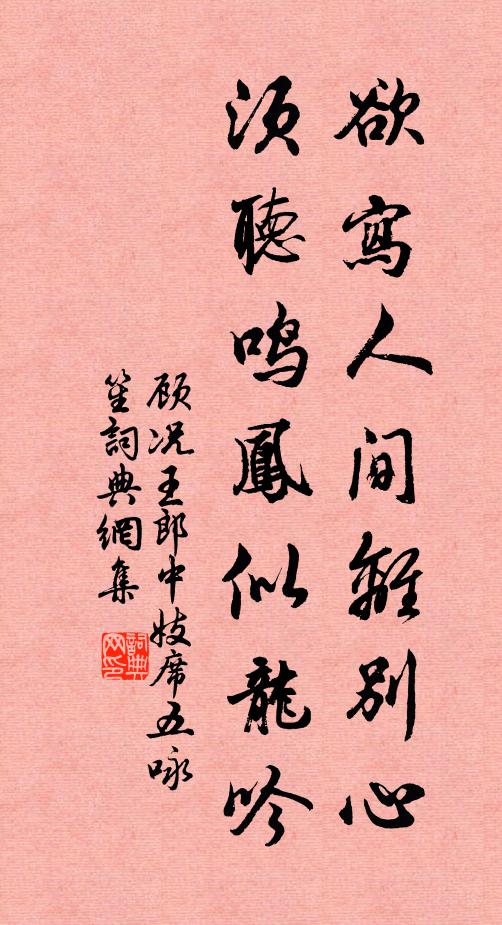 欲寫人間離別心
須聽鳴鳳似龍吟
顧况王郎中妓席五咏
笙詞典網集
詞典网印